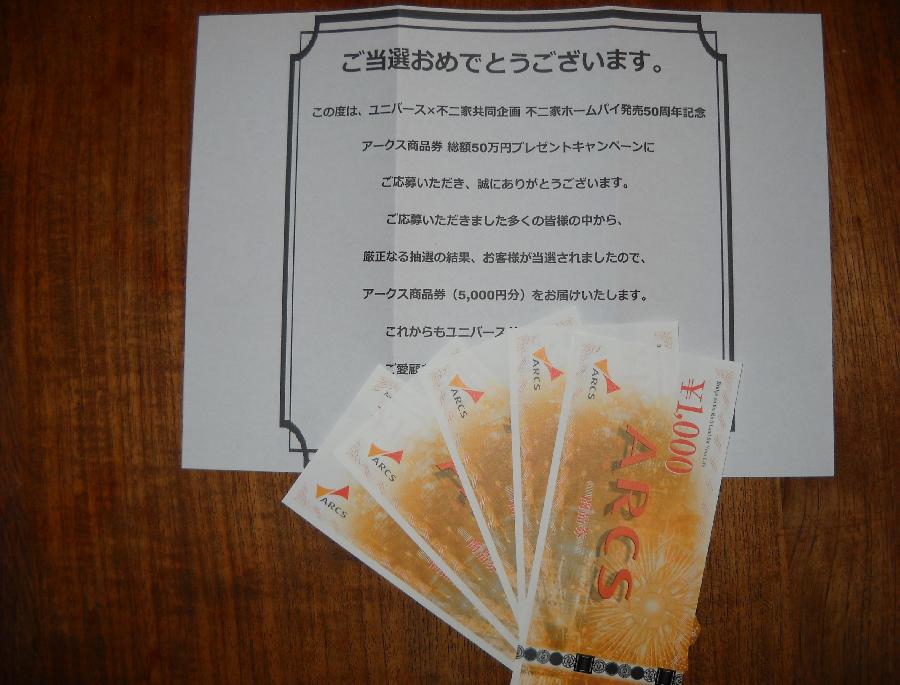 ご当選おめでとうございます。
この度は、ユニバース×不二家共同企画 不二家ホームパイ発売50周年記念
アークス商品券 総額50万円プレゼントキャンペーンに
ご応募いただき、誠にありがとうございます。
ご応募いただきました多くの皆様の中から、
厳正なる抽選の結果、お客様が当選されましたので、
アークス商品券（5,000円分）をお届けいたします。
これからもユニバース
ご愛顧
ARCS
ARCS
ARCS
ARCS
ARCS
¥1,000
ARCS
商品券